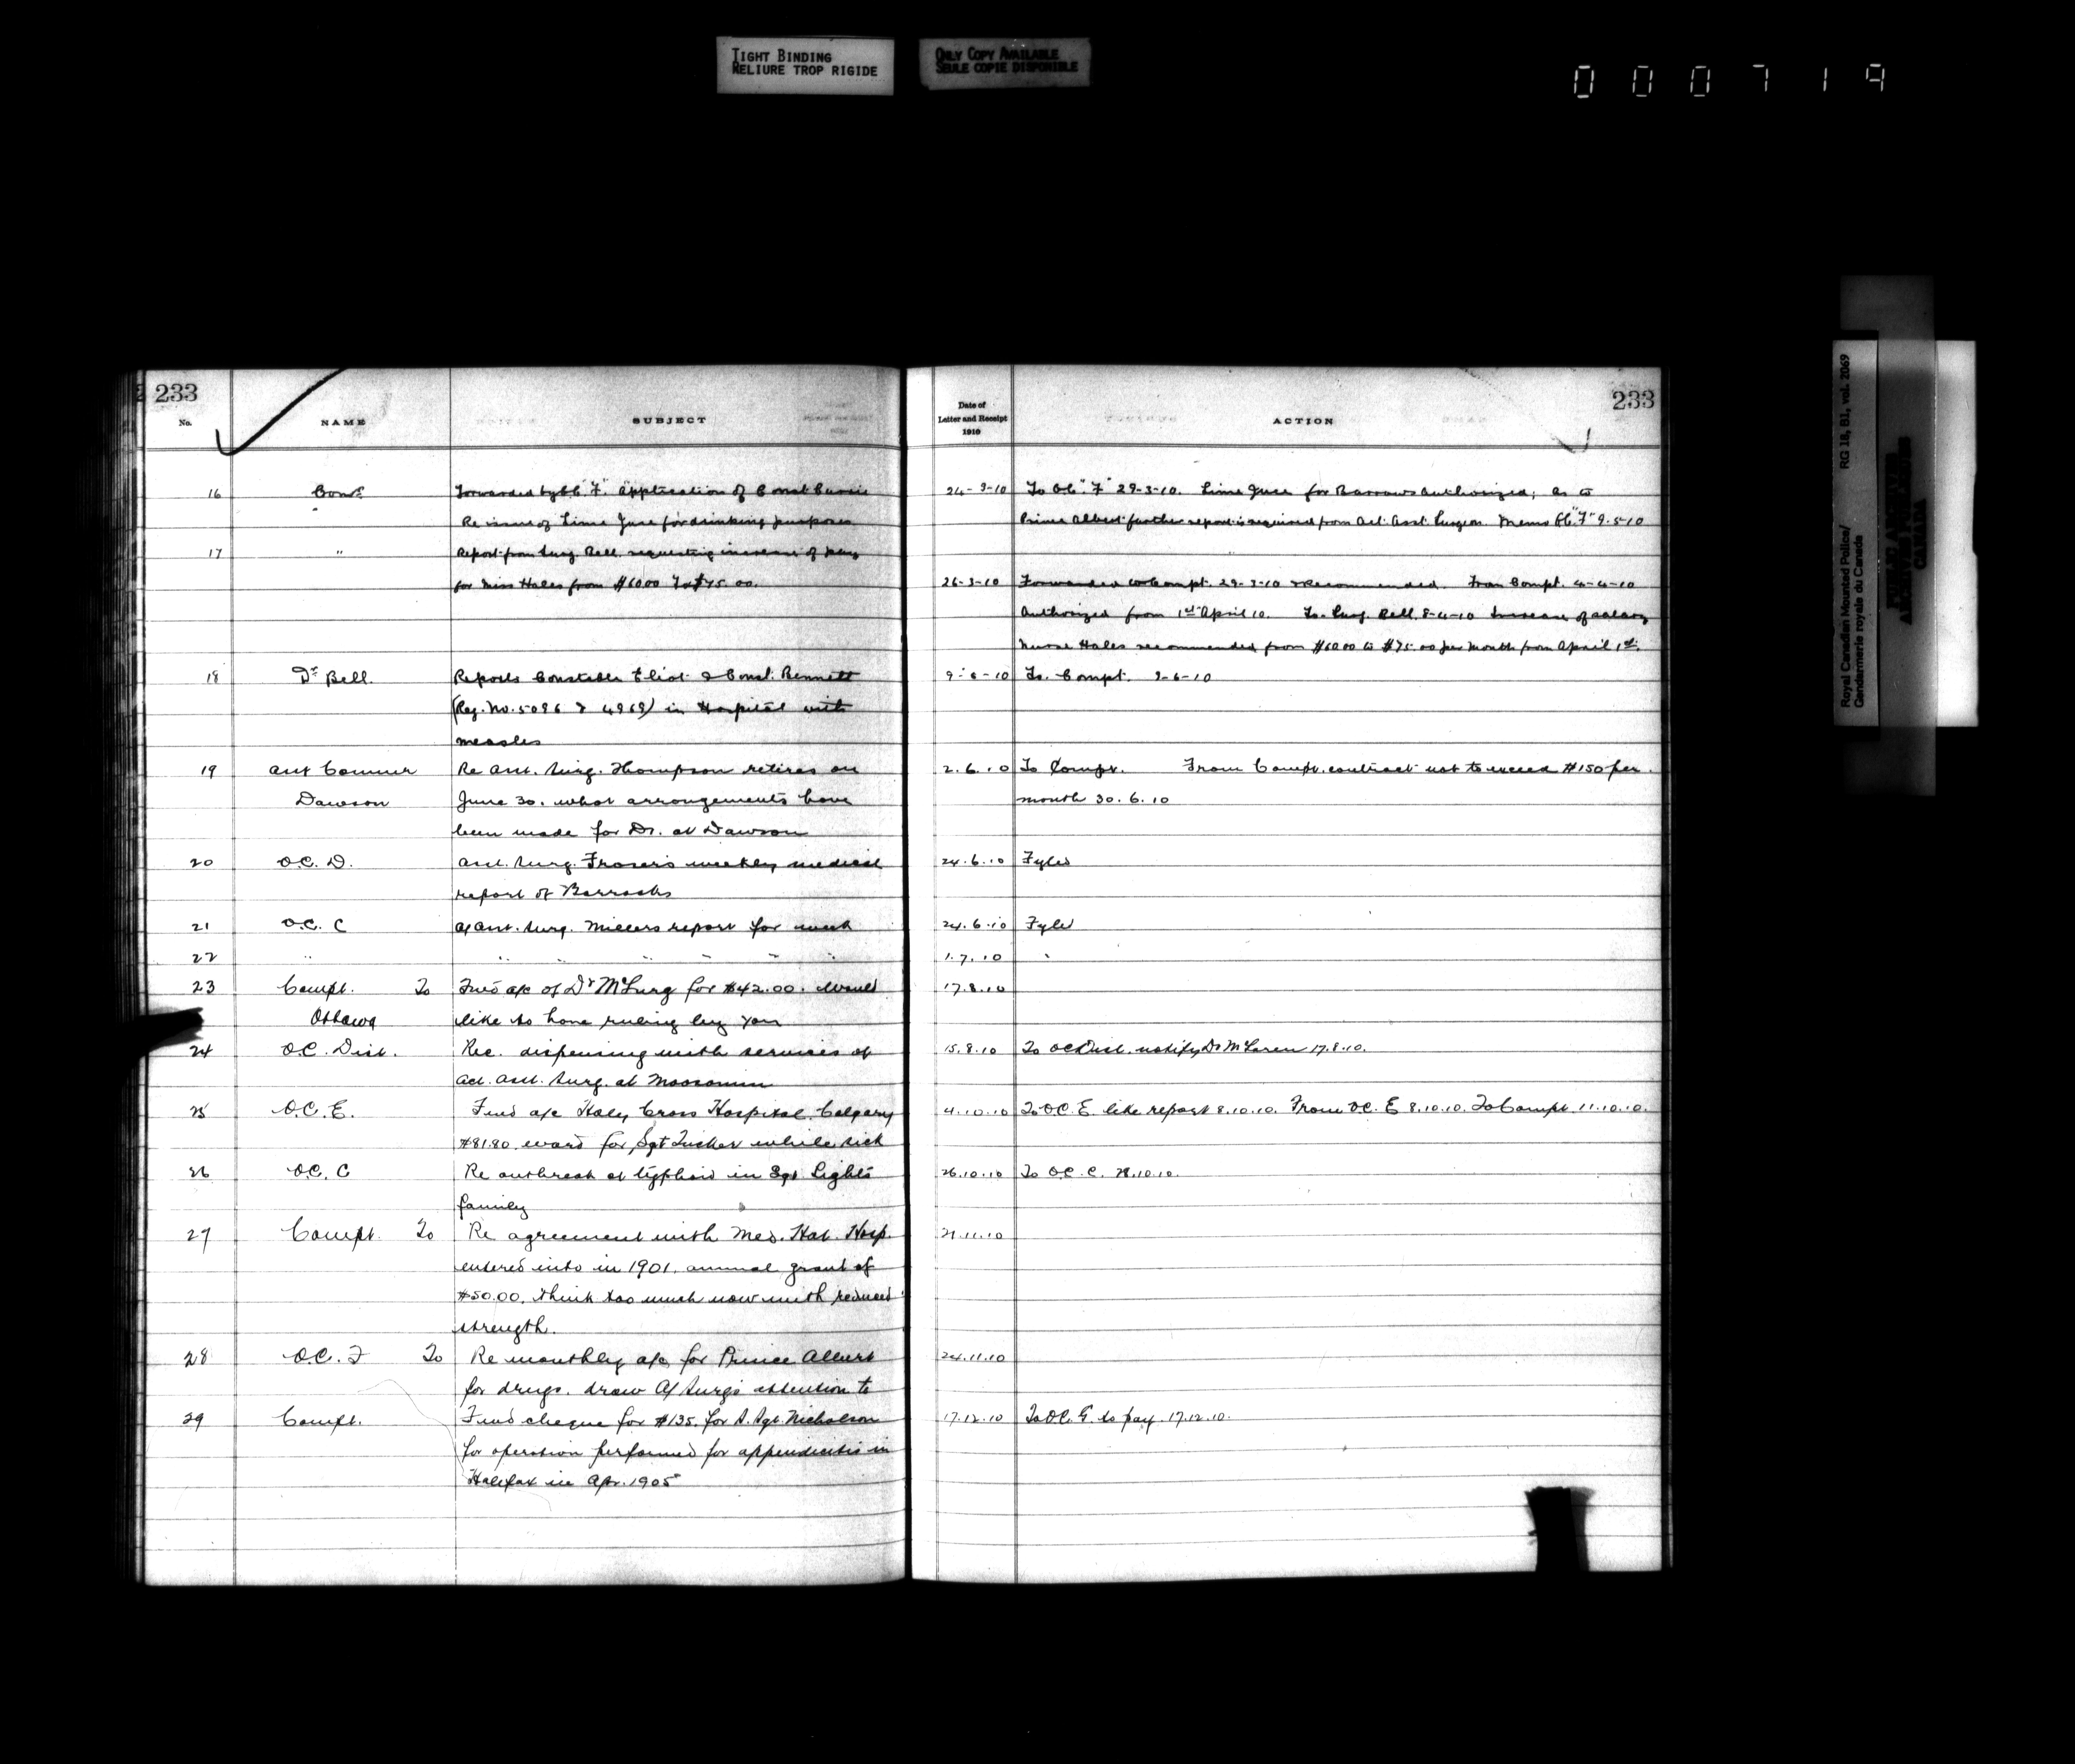 TIGHT BINDING
RELIURE TROP RIGIDE
ONLY COPY AVAILABLE
SEULE COPIE DISPONIBLE
000719
Royal Canadian Mounted Police/ RG 18, B1, vol. 2069
Gendarmerie royale du Canada
PUBLIC ARCHIVES
ARCHIVES PUBLIQUES
CANADA
233 233
No. NAME SUBJECT Date of Letter and Receipt 1910 ACTION
16 Comr. Forwarded by OC "F" application of Const 24-3-10 To OC. "F" 29-3-10. Lime Juice for Barrows authorized; as to
Re issue of Lime Juice for drinking purposes Prince Albert further report is required from Act. Asst. Surgeon. Memo OC. "F" 9-5-10
17 " Report from Surg. Bell. requesting increase of pay
for Miss Hales from $60.00 To $75.00. 26-3-10 Forwarded to Compt. 29-3-10 & Recommended. From Compt. 4-4-10
Authorized from 1st April 10. To Surg. Bell. 8-4-10 Increase of salary
Nurse Hales recommended from $60.00 to $75.00 per month from April 1st.
18 Dr Bell. Reports Constable Eliot & Const. Bennett 9-6-10 To. Compt. 9-6-10
(Reg. No. 5096 & 4969) in Hospital with
measles
19 Asst Commr Re Asst. Surg. Thompson retires on 2.6.10 To Compt. From Compt. contract not to exceed $150 per
Dawson June 30. what arrangements have month 30.6.10
been made for Dr. at Dawson
20 O.C. D. Asst. Surg. Fraser's weekly medical 24.6.10 Fyled
report of Barracks
21 O.C. C A/Asst. Surg. Millers report for week 24.6.10 Fyled
22 " " " " " " " 1.7.10 "
23 Compt. To Fwd a/c of Dr McLurg for $42.00. would 17.8.10
Ottawa like to have ruling by you
24 O.C. Dist. Rec. dispensing with services of 15.8.10 To OC Dist. notify Dr McLaren 17.8.10.
Act. Asst. Surg. at Moosomin
25 O.C. E. Fwd a/c Holy Cross Hospital Calgary 4.10.10 To O.C. E. like report 8.10.10. From O.C. E 8.10.10. To Compt 11.10.10.
$81.80 ward for Sgt Tucker while sick
26 O.C. C Re outbreak of typhoid in Sgt. Lights 26.10.10 To O.C. C. 28.10.10.
family
27 Compt. To Re agreement with Med. Hat. Hosp. 21.11.10
entered into in 1901. annual grant of
$50.00. think too much now with reduced
strength.
28 O.C. F To Re monthly a/c for Prince Albert 24.11.10
for drugs. draw A/Surgs attention to
29 Compt. Fwd cheque for $135. for S. Sgt. Nicholson 17.12.10 To O.C. G. to pay. 17.12.10.
for operation performed for appendicitis in
Halifax in Apr. 1905